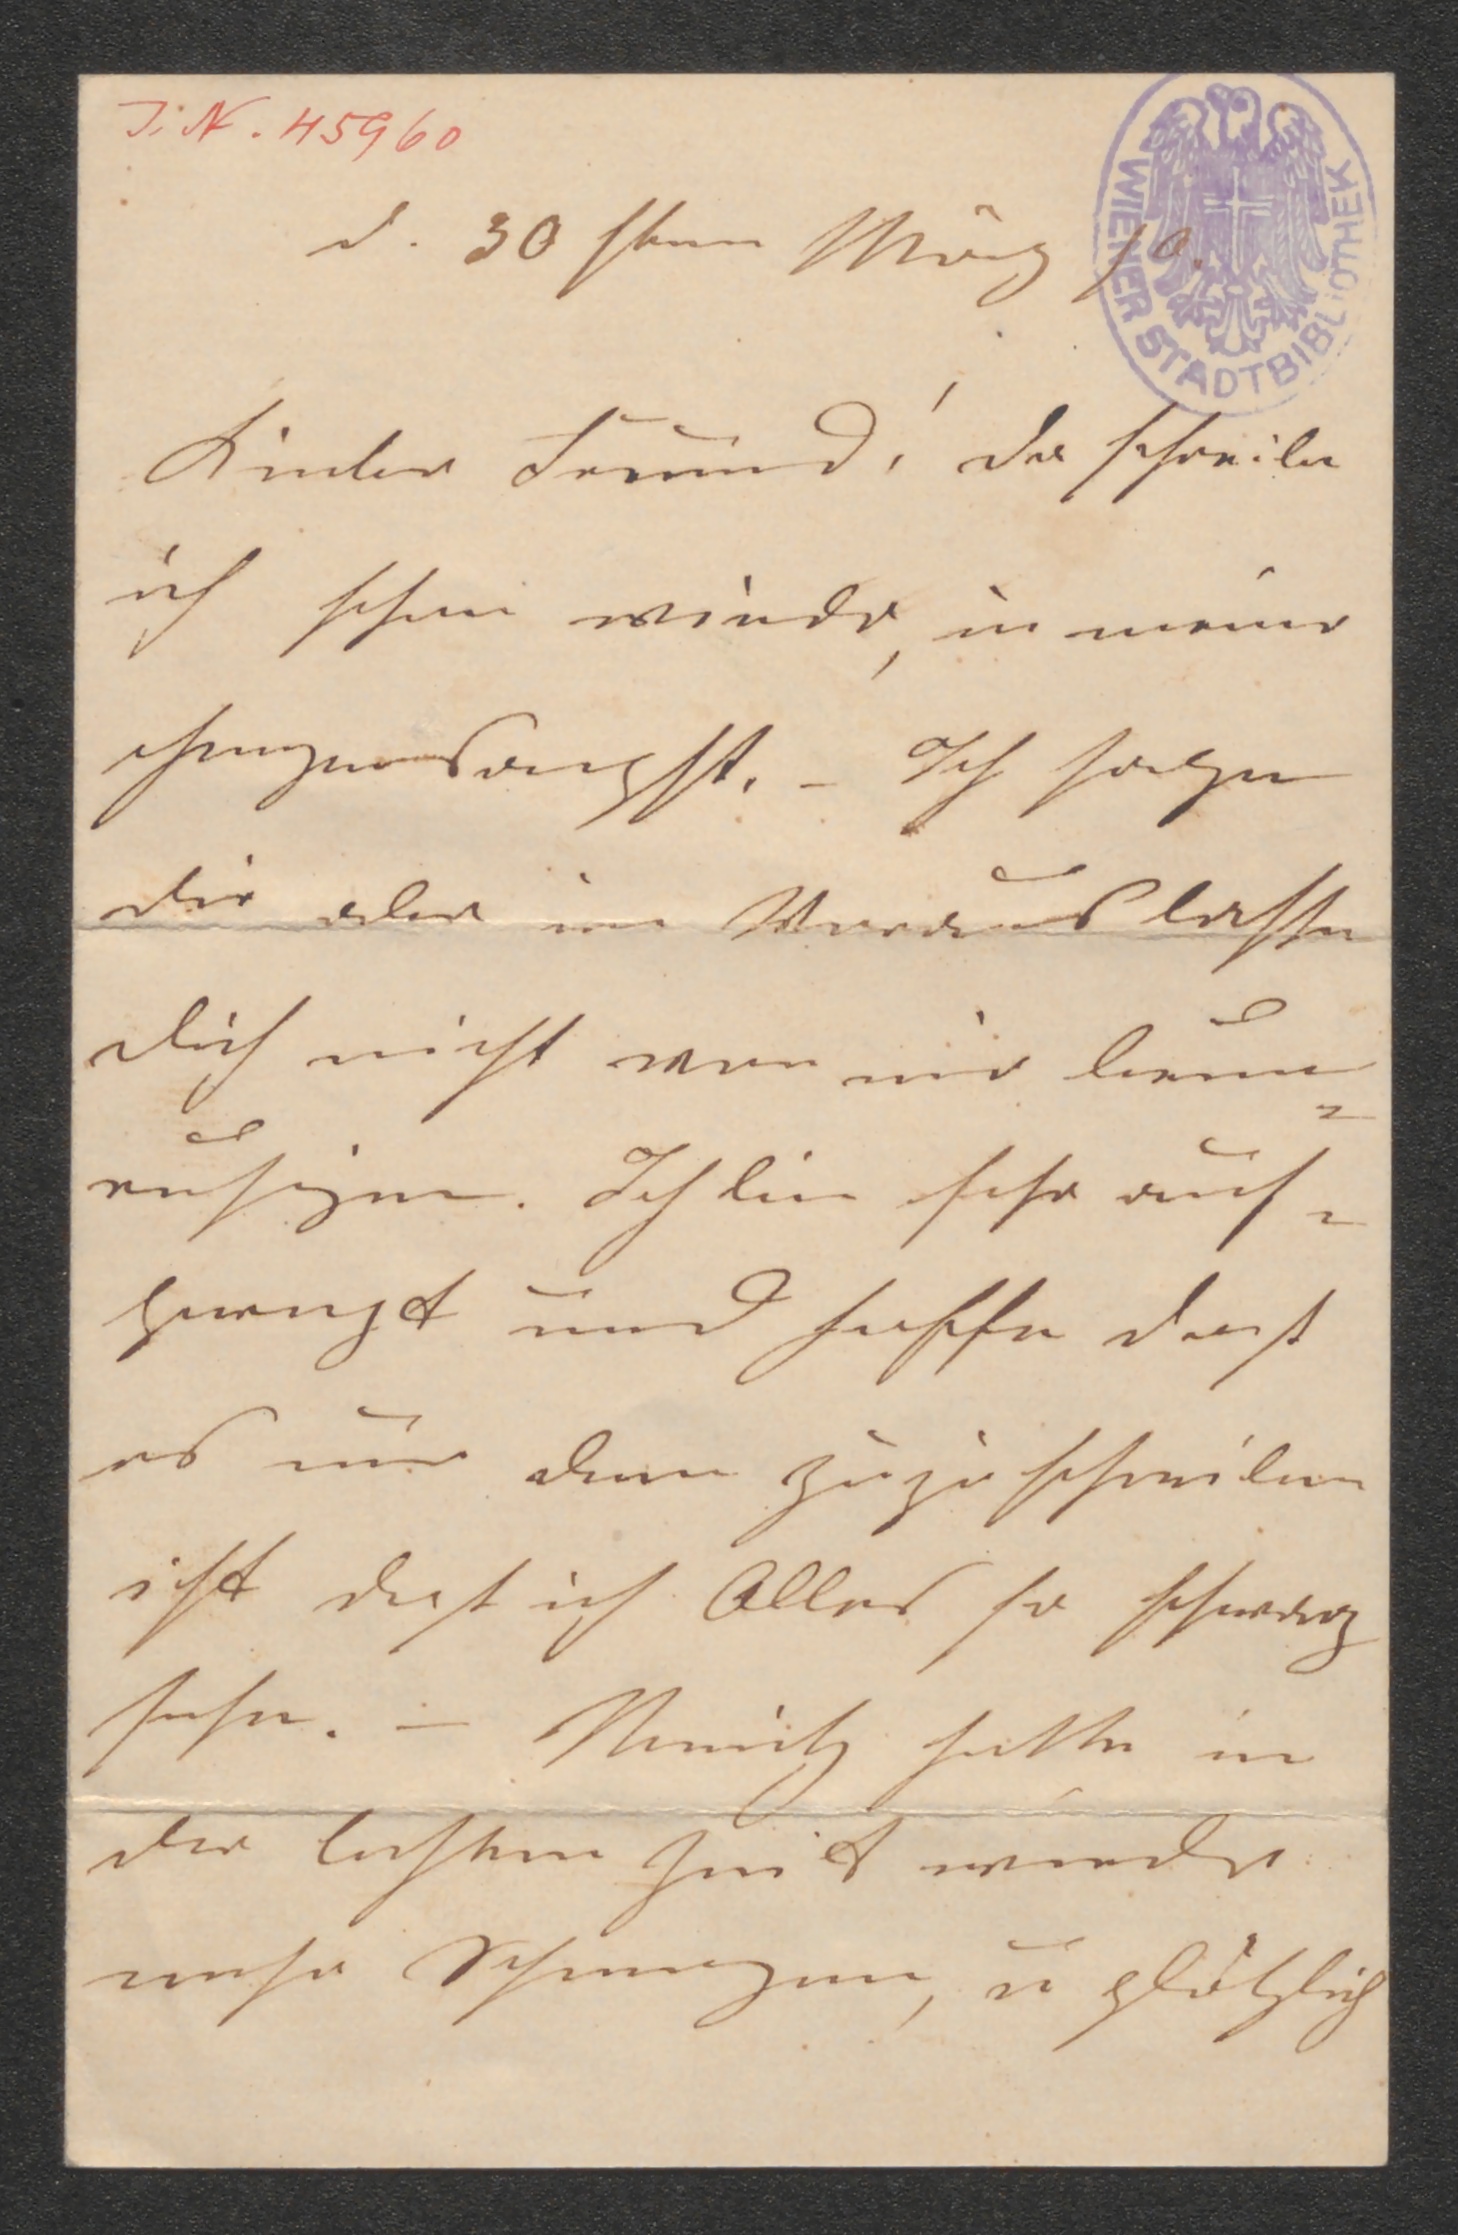 J. N. 45960
WIENER STADTBIBLIOTHEK
d. 30 sten März
Lieber Freund! Da schreibe
ich schon wieder, in meiner
Herzensangst. – Ich sage
dir aber im Voraus lasse
dich nicht von mir beun=
ruhigen. Ich bin sehr auf=
geregt und hoffe daß
es nur dem zuzuschreiben
ist daß ich Alles so schwarz
sehe. – Moritz hatte in
der letzten Zeit wieder
mehr Schmerzen, u plötzlich